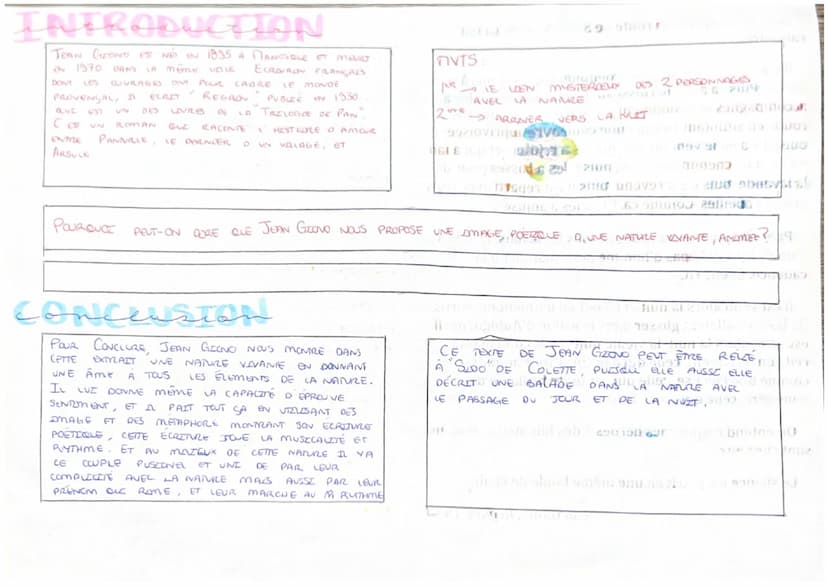 INTRODUCTION
JEAN GIONO EST NÉ EN 1895 A MANOSQUE ET MEURT
EN 1970 DANS LA MÊME VILLE ECRIVAIN FRANÇAIS
DONT LES OUVRAGES ONT POUR CADRE LE MONDE
PROVENÇAL, IL ECRIT "REGAIN" PUBLIÉ EN 1930.
QUI EST UN DES LIVRES DE LA "TRILOGIE DE PAN".
C'EST UN ROMAN QUI RACONTE L'HISTOIRE D'AMOUR
ENTRE PANTURLE, LE DERNIER D'UN VILLAGE, ET
ARSULE
MVTS
1ER → LE LIEN MYSTERIEUX DES 2 PERSONNAGES
AVEC LA NATURE
2EME → ARRIVER VERS LA NUIT
POURQUOI PEUT-ON DIRE QUE JEAN GIONO NOUS PROPOSE UNE IMAGE, POÉTIQUE, D'UNE NATURE VIVANTE, ANIMÉE?
CONCLUSION
POUR CONCLURE, JEAN GIONO NOUS MONTRE DANS
CETTE EXTRAIT UNE NATURE VIVANTE EN DONNANT
UNE ÂME À TOUS LES ÉLEMENTS DE LA NATURE.
IL LUI DONNE MÊME LA CAPACITÉ D'ÉPROUVE
SENTIMENT, ET IL FAIT TOUT ÇA EN UTILISANT DES
IMAGE ET DES METAPHORE MONTRANT SON ECRITURE
POÉTIQUE, CETTE ÉCRITURE JOUE LA MUSICALITÉ ET
RYTHME. ET AU MILIEUX DE CETTE NATURE IL Y A
CE COUPLE FUSIONEL ET UNI DE PAR LEUR
COMPLICITÉ AVEC LA NATURE MAIS AUSSI PAR LEUR
PRÉNOM QUI RIME, ET LEUR MARCHE AU M RYTHME
CE TEXTE DE JEAN GIONO PEUT ÊTRE RELIÉ
À "SIDO" DE COLETTE, PUISQU'ELLE AUSSI ELLE
DÉCRIT UNE BALADE DANS LA NATURE AVEC
LE PASSAGE DU JOUR ET DE LA NUIT.